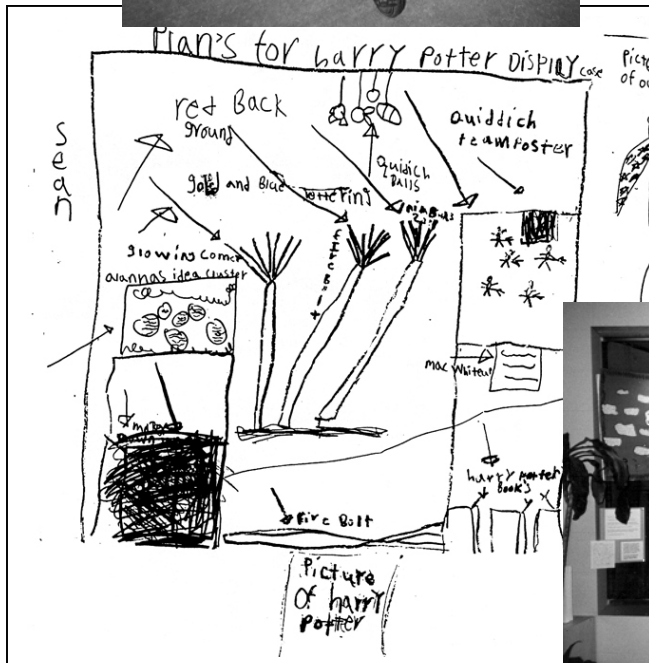 Plan's for harry Potter DISPLAY case
Pictu
of ou
sean
red Back
ground
Quiddich
team Poster
Quidich
Balls
gold and Blue lettering
glowing comen
ariannas idea cluster
fire Bolt
mac White
harry Potter
Books
fire Bolt
Picture
of harry
Potter